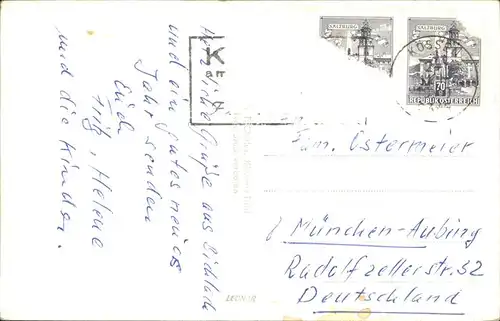 Herzliche Grüße aus
und ein gutes neues
Jahr senden
Euch
Fritz, Helene
und die Kinder.
SALZBURG
SALZBURG
70
REPUBLIK ÖSTERREICH
KÖSS
Fam. Ostermeier
München-Aubing
Radolfzellerstr. 32
Deutschland